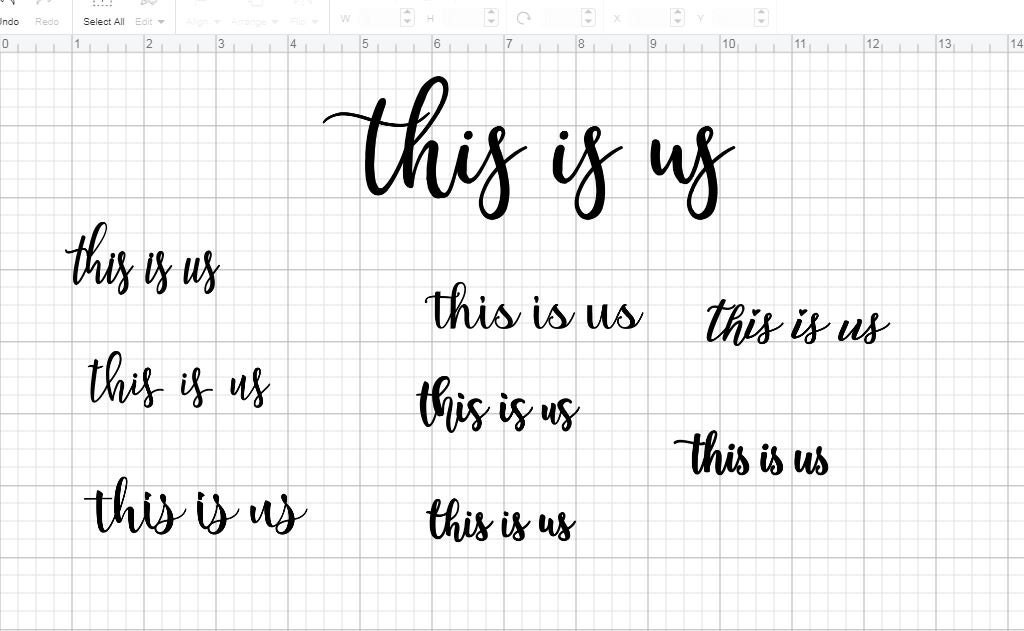 Undo Redo Select All Edit Align Arrange Flip W H X Y
0 1 2 3 4 5 6 7 8 9 10 11 12 13 14
this is us
this is us
this is us
this is us
this is us
this is us
this is us
this is us
this is us